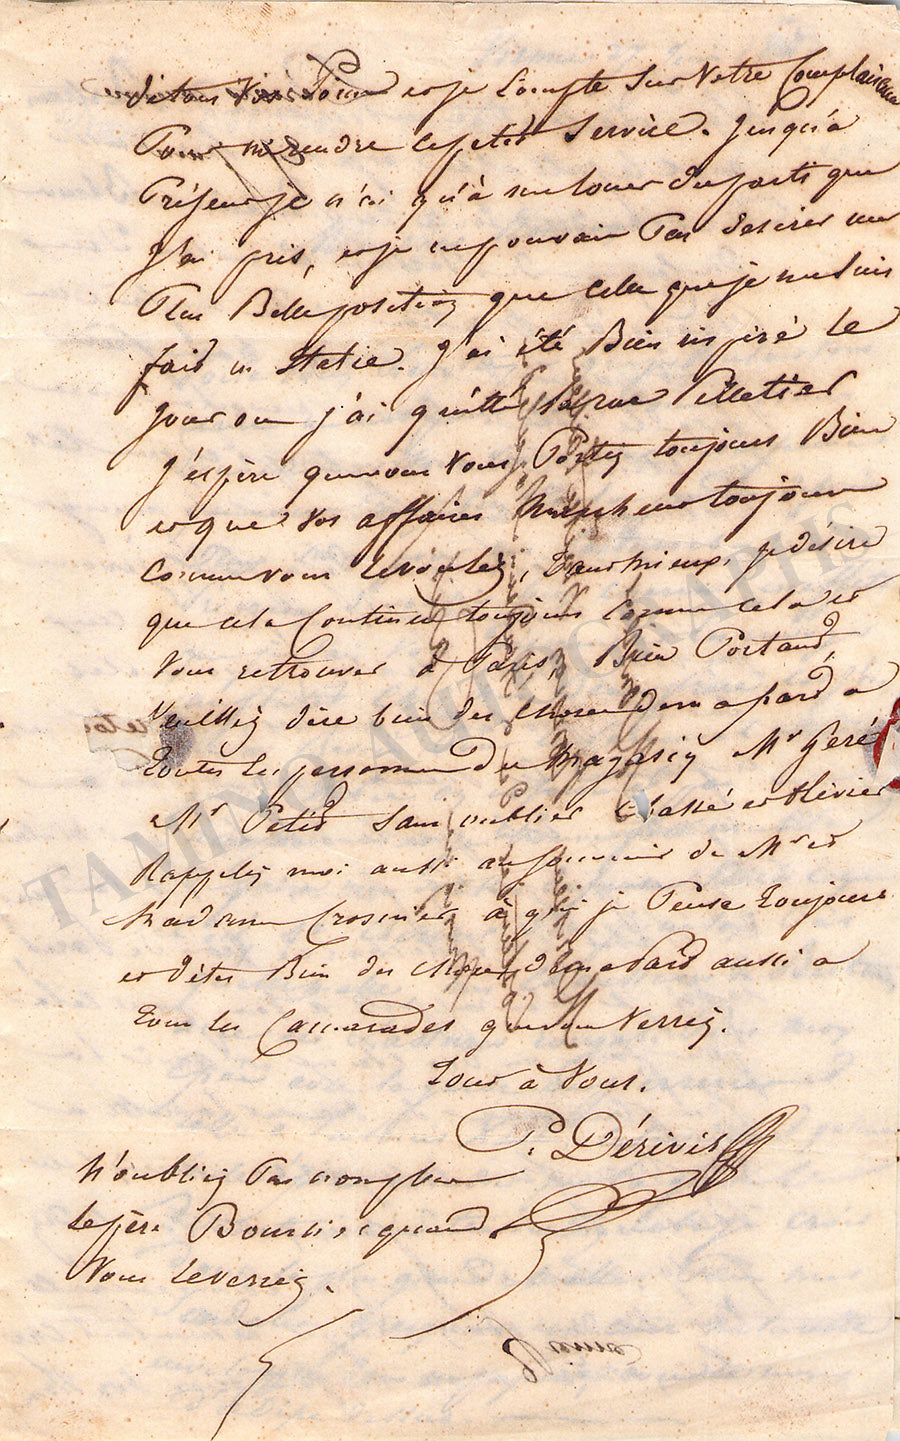 et je Compte Sur Votre Complaisance
Pour me rendre ce petit Service. Jusqu'à
Présent je n'ai qu'à me louer du parti que
J'ai pris, et je ne pouvais Pas desirer une
Plus Belle position que celle que je me suis
fait en Italie. J'ai été Bien inspiré le
Jour ou j'ai quitté la rue Pelletier
J'espère que vous Vous Portez toujours Bien
et que Vos affaires Marchent toujours
Comme vous le voulez, Tant mieux, je désire
que cela Continue toujours Comme cela et
Vous retrouver à Paris, Bien Portant,
Veuillez dire bien des choses de ma part a
toutes les personnes du Magasin Mr Geré
Mr Petit Sans oublier et Olivier
Rappelez moi aussi au Souvenir de Mr et
Madame Crosnier à qui je Pense toujours
et dites Bien des choses de ma Part aussi a
tous les Camarades que vous Verrez.
Tout à Vous.
P. Dérivis
N'oubliez Pas non plus
le père Boursier quand
Vous le verrez.
TAMINO AUTOGRAPHS